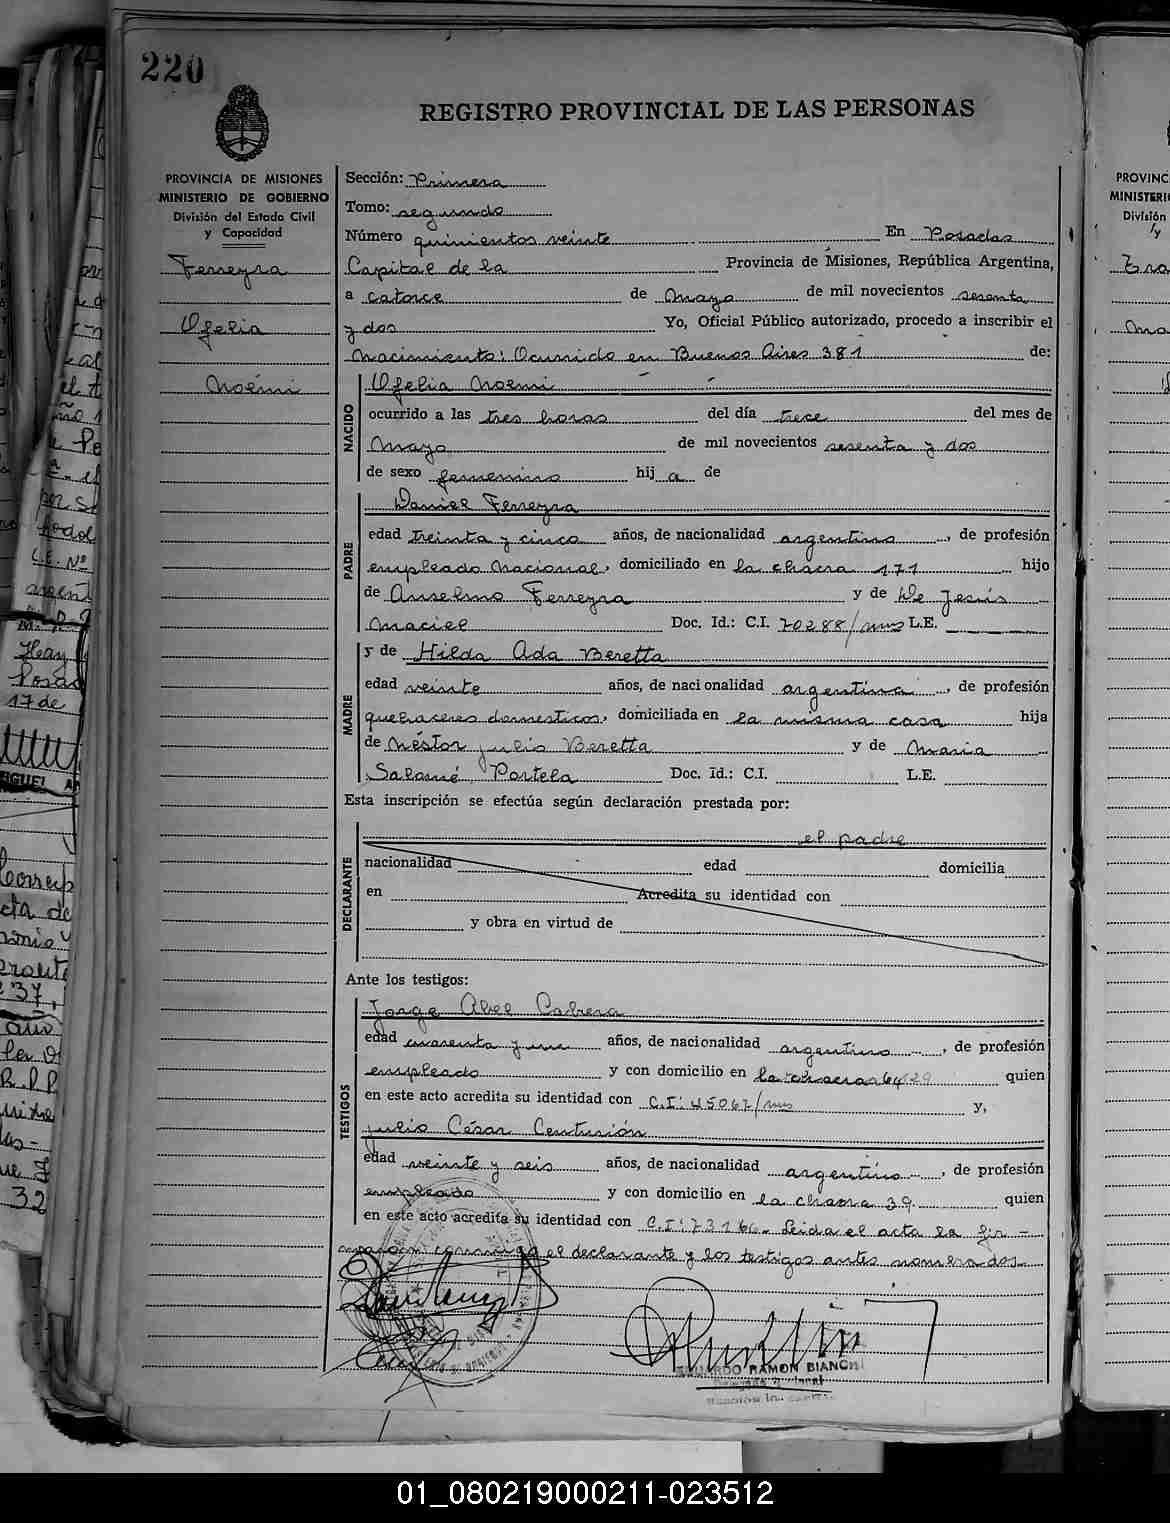 220
REGISTRO PROVINCIAL DE LAS PERSONAS
PROVINCIA DE MISIONES
MINISTERIO DE GOBIERNO
División del Estado Civil
y Capacidad
Ferreyra
Ofelia
Noemi
Sección: Primera
Tomo: segundo
Número quinientos veinte En Posadas
Capital de la Provincia de Misiones, República Argentina,
a catorce de Mayo de mil novecientos sesenta
y dos Yo, Oficial Público autorizado, procedo a inscribir el
Nacimiento: Ocurrido en Buenos Aires 381 de:
NACIDO
Ofelia Noemi
ocurrido a las tres horas del día trece del mes de
Mayo de mil novecientos sesenta y dos
de sexo femenino hij a de
PADRE
Daniel Ferreyra
edad treinta y cinco años, de nacionalidad argentino, de profesión
empleado Nacional, domiciliado en la chacra 171 hijo
de Anselmo Ferreyra y de De Jesús
Maciel Doc. Id.: C.I. 70288/mns L.E.
MADRE
y de Hilda Ada Beretta
edad veinte años, de nacionalidad argentina, de profesión
quehaceres domesticos, domiciliada en la misma casa hija
de Néstor Julio Beretta y de Maria
Salomé Portela Doc. Id.: C.I. L.E.
Esta inscripción se efectúa según declaración prestada por:
DECLARANTE
el padre
nacionalidad edad domicilia
en Acredita su identidad con
y obra en virtud de
Ante los testigos:
TESTIGOS
Jorge Abel Cabrera
edad cuarenta y un años, de nacionalidad argentino, de profesión
empleado y con domicilio en quien
en este acto acredita su identidad con C.I: 45067/mns y,
Julio César Centurión
edad veinte y seis años, de nacionalidad argentino, de profesión
empleado y con domicilio en la chacra 39 quien
en este acto acredita su identidad con C.I: 73166. Leida el acta la fir-
maron conmigo el declarante y los testigos antes nomerados
EDUARDO RAMON BIANCHI
01_080219000211-023512